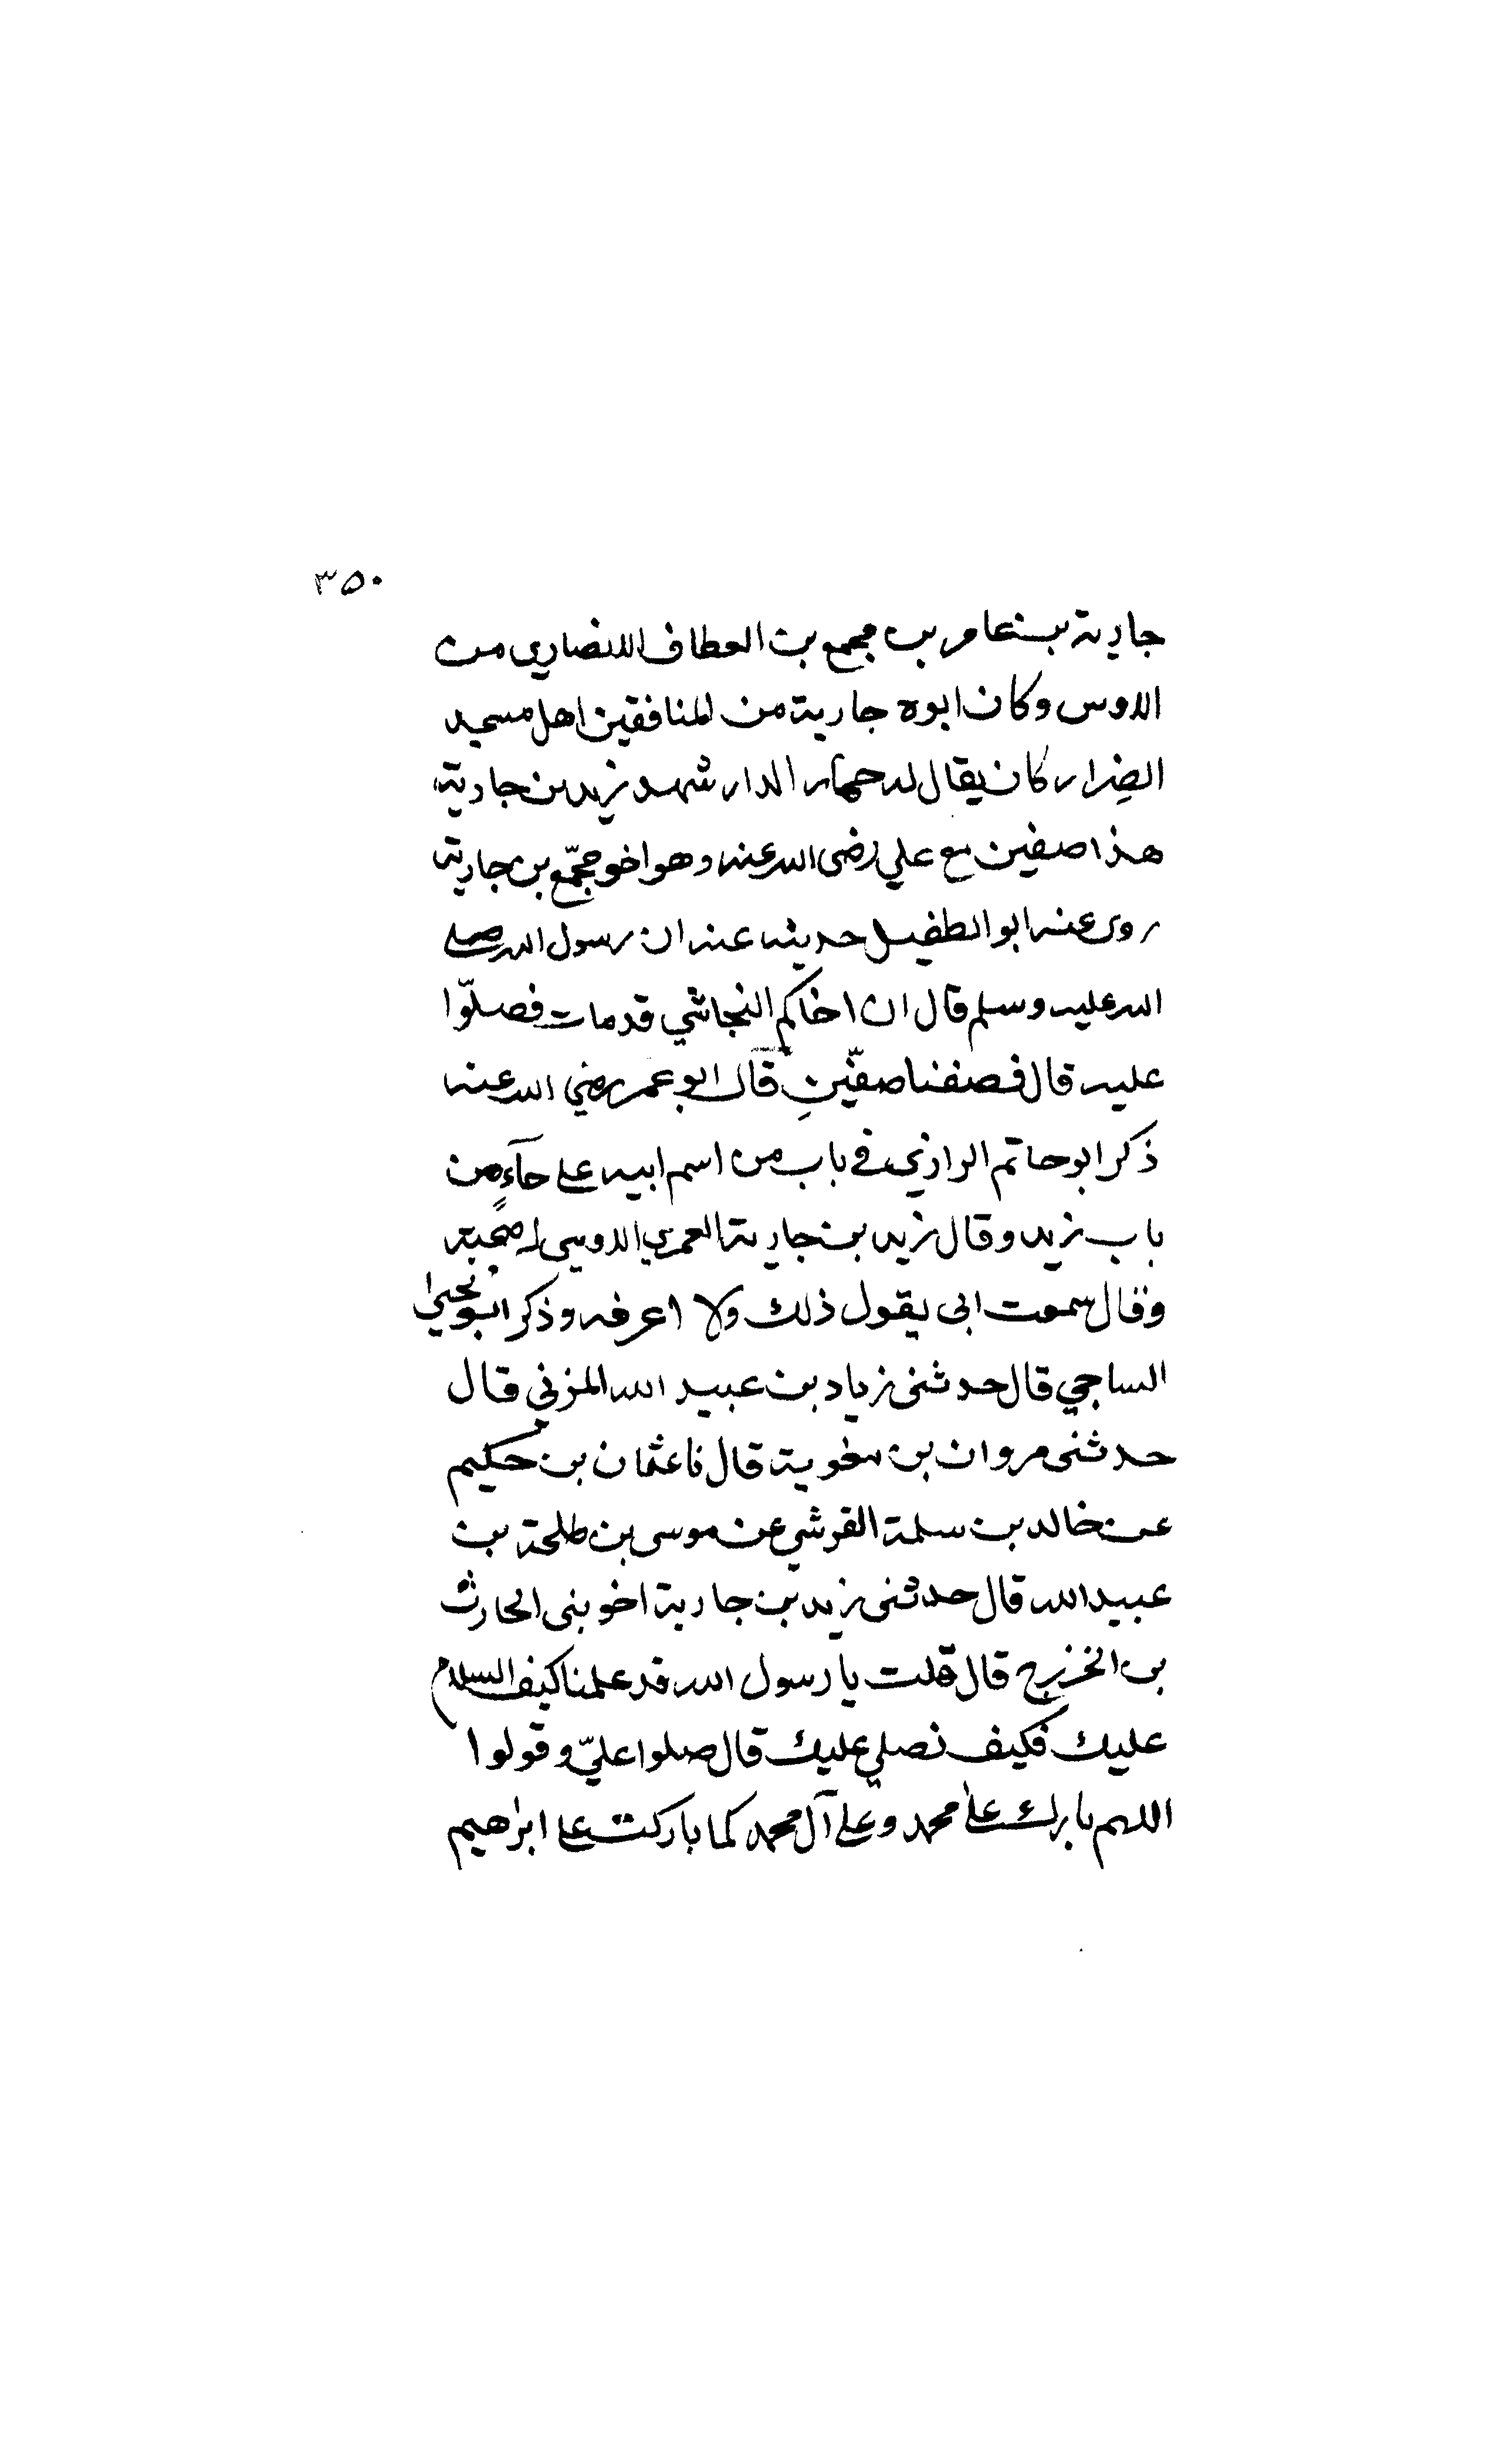 ٣٥٠
جارية بن عامر بن مجمع بن العطاف الانصاري من
الاوس وكان ابوه جارية من المنافقين اهل مسجد
الضِرار كان يقال له حمار الدار شهد زيد بن جارية
هذا صفين مع علي رضى الله عنه وهو اخو مجمّع بن جارية
روى عنه ابو الطفيل حديثه عنه ان رسول الله صلى
الله عليه وسلم قال ان اخاكم النجاشي قد مات فصلّوا
عليه قال فصففنا صفّينِ قال ابو عمر رضي الله عنه
ذكر ابو حاتم الرازي في باب من اسم ابيه على حآءٍ من
باب زيد وقال زيد بن جارية العمري الاوسي له صحبة
وقال سمعت ابى يقول ذلك ولا اعرفه وذكر ابو يحيى
الساجي قال حدثنى زياد بن عبيد الله المزني قال
حدثنى مروان بن معوية قال نا عثمان بن حكيم
عن خالد بن سلمة القرشي عن موسى بن طلحة بن
عبيد الله قال حدثنى زيد بن جارية اخو بنى الحارث
بن الخزرج قال قلت يا رسول الله قد علمنا كيف السلام
عليك فكيف نصلي عليك قال صلوا عليّ وقولوا
اللهم بارك على محمد وعلى آل محمد كما باركت على ابرٰهيم